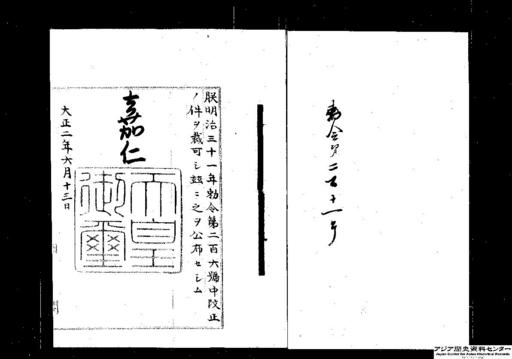 勅令第二百十一号
朕明治三十一年勅令第二百六號中改正
ノ件ヲ裁可シ茲ニ之ヲ公布セシム
嘉仁
天皇
御璽
大正二年六月十三日
アジア歴史資料センター
Japan Center for Asian Historical Records